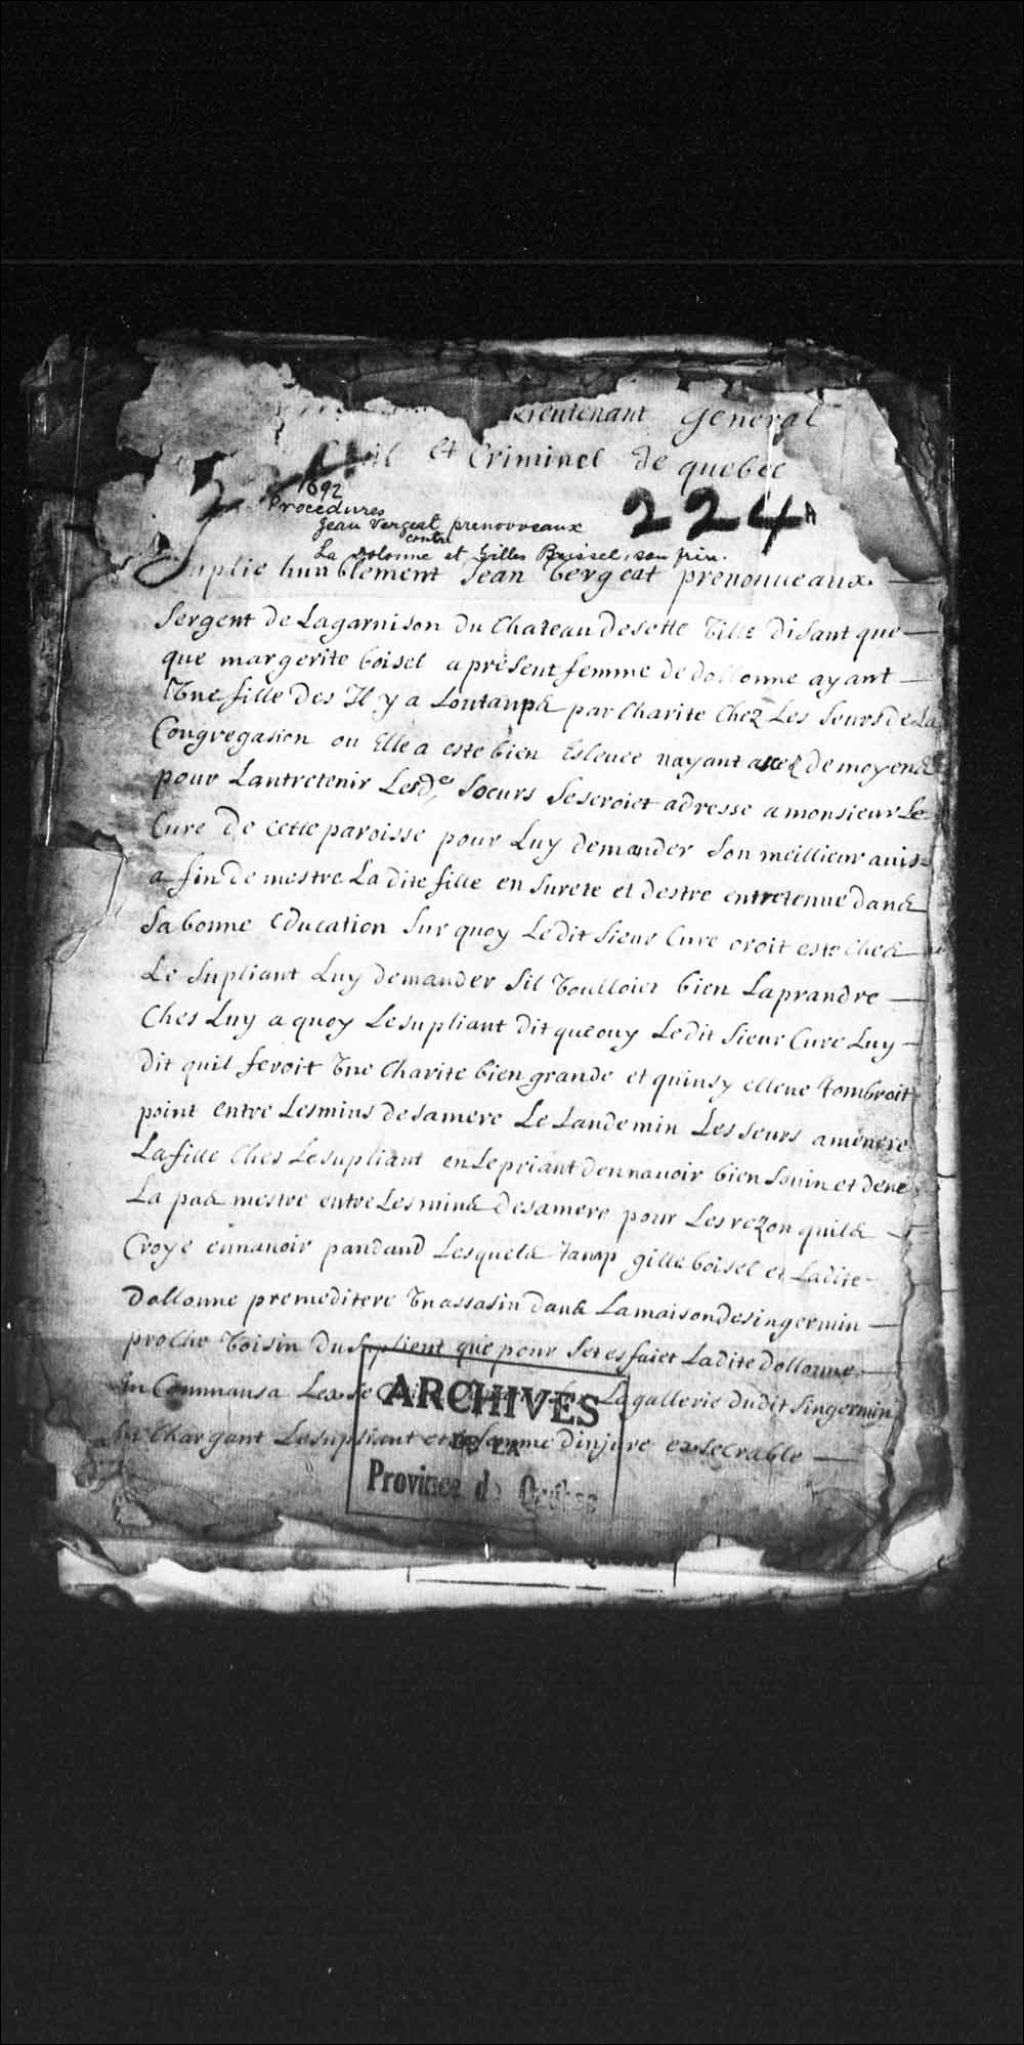 Lieutenant General
Civil et Criminel de quebec
1692
Procédures
Jean Vergeat prenouveaux
contre
La Dolonne et Gilles Boissel, son père.
224A
Suplie humblement Jean Vergeat prenouueaux
Sergent de Lagarnison du Chateau desette Ville disant que
que margerite boisel a présent femme de dollonne ayant
Vne fille des Il y a Lontanps par Charite Chez Les seurs de La
Congregasion ou Elle a este bien Esleuee nayant assez de moyens
pour Lantretenir Lesd.es soeurs seseroiet adresse a monsieur Le
Cure de cette paroisse pour Luy demander son meillieur auis
a fin de mestre La dite fille en surete et destre entretenue dans
sa bonne Education sur quoy Ledit sieur Cure oroit este Ches
Le supliant Luy demander sil Voulloiet bien Laprandre
Ches Luy a quoy Lesupliant dit que ouy Ledit sieur Cure Luy
dit quil feroit Vne Charite bien grande et quinsy ellene tombroit
point entre Lesmins desamere Le Landemin Les seurs amenere
La fille Ches Lesupliant en Le priant dennauoir bien souin et dene
La pas mestre entre Les mins desamere pour Les rezon quils
Croye ennauoir pandand Lesquels tamp gille boisel et Ladite
Dollonne premeditere Vnassasin dans Lamaison desingermin
proche Voisin du supliant que pour set esfaiet Ladite dollonne
En Commansa Lagallerie dudit singermin
En Chargant Lesupliant et safamme dinjure exsecrable
ARCHIVES
DE LA
Province de Québec